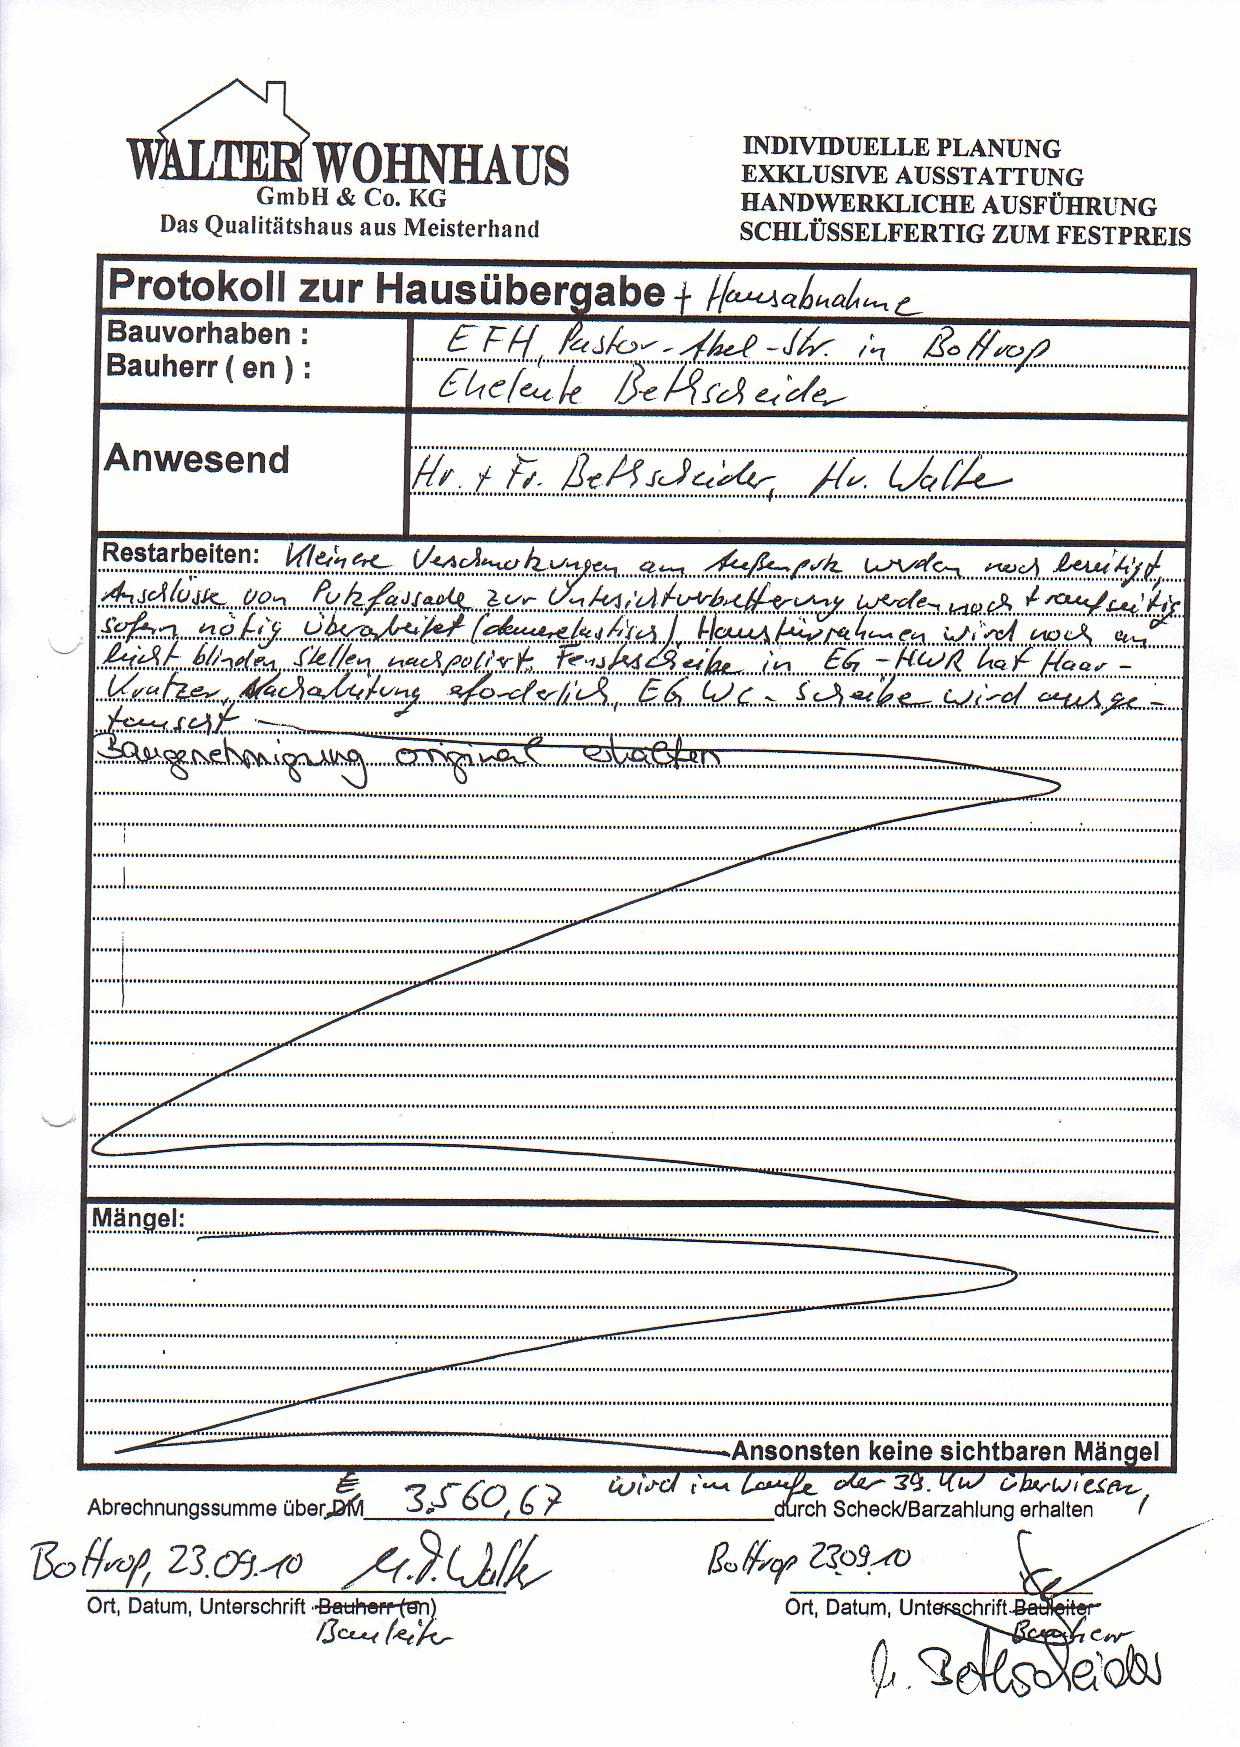 WALTER WOHNHAUS
GmbH & Co. KG
Das Qualitätshaus aus Meisterhand
INDIVIDUELLE PLANUNG
EXKLUSIVE AUSSTATTUNG
HANDWERKLICHE AUSFÜHRUNG
SCHLÜSSELFERTIG ZUM FESTPREIS
Protokoll zur Hausübergabe + Hausabnahme
Bauvorhaben : EFH, Pastor-Abel-Str. in Bottrop
Bauherr ( en ) : Eheleute Bethscheider
Anwesend
Hr. + Fr. Bethscheider, Hr. Walter
Restarbeiten: Kleinere Verschmutzungen am Außenputz werden noch bereitigt,
Anschlüsse von Putzfassade zur Untersichtverbretterung werden noch traufseitig
sofern nötig überarbeitet (dauerelastisch), Haustürrahmen wird noch an
leicht blinden Stellen nachpoliert, Fensterscheibe in EG-HWR hat Haar-
Kratzer, Nacharbeitung erforderlich, EG WC-Scheibe wird ausge-
tauscht
Baugenehmigung original erhalten
Mängel:
Ansonsten keine sichtbaren Mängel
€ wird im Laufe der 39. KW überwiesen,
Abrechnungssumme über DM 3.560,67 durch Scheck/Barzahlung erhalten
Bottrop, 23.09.10 M. Walter
Bottrop 23.09.10
Ort, Datum, Unterschrift Bauherr (en)
Bauleiter
Ort, Datum, Unterschrift Bauleiter
Bauherr
Bethscheider